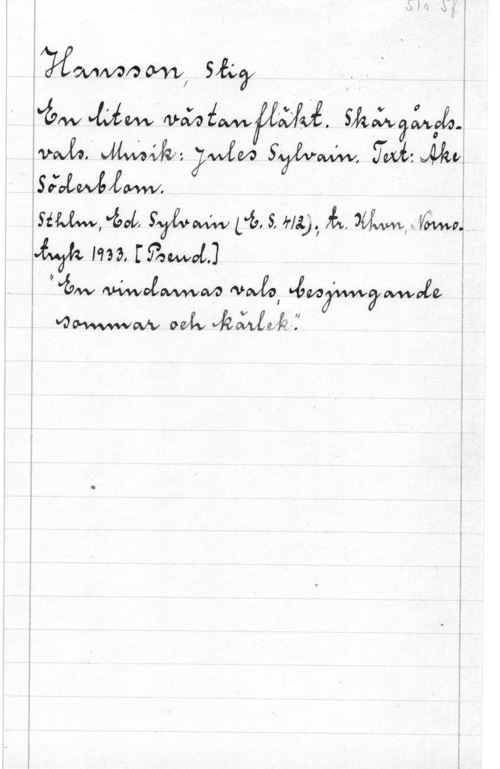 Hansson, Stig
En liten västanfläkt. Skärgårds-
vals. Musik: Jules Sylvain. Text: Åke
Söderblom.
Sthlm, Ed. Sylvain (E. S. 412); tr. Khvn, Nomo-
tryk 1933. [Pseud.]
"En vindarnas vals, besjungande
sommar och kärlek."